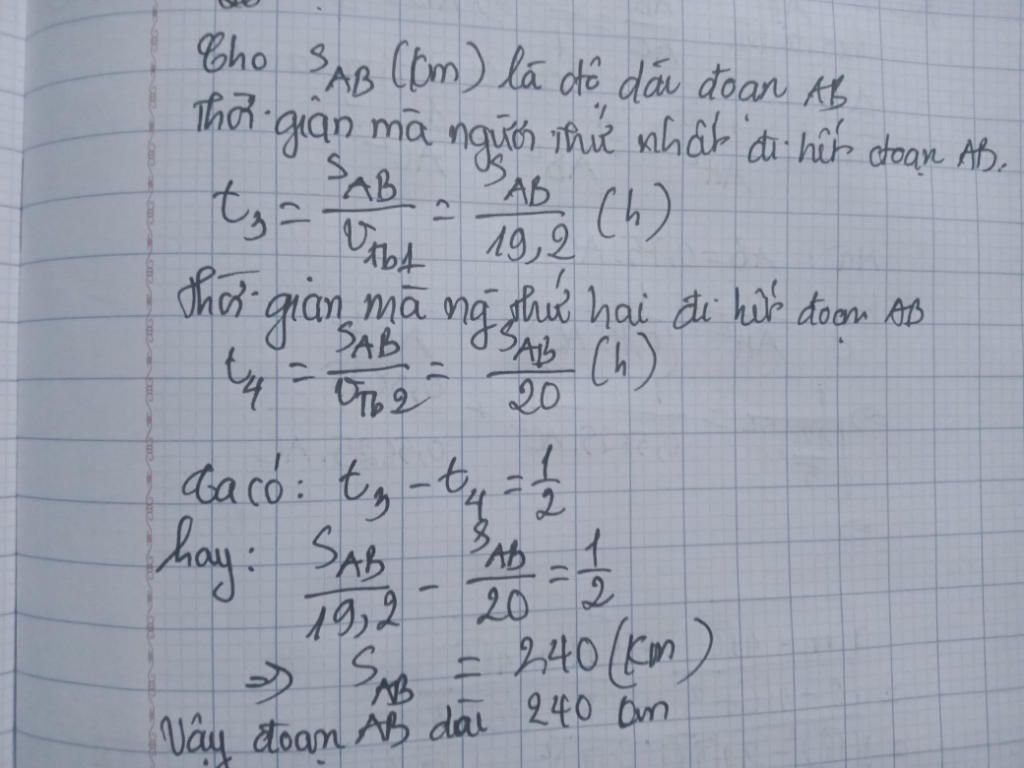 Cho S_AB (km) là độ dài đoạn AB
Thời gian mà người thứ nhất đi hết đoạn AB.
t_3 = S_AB / v_Tb1 = S_AB / 19,2 (h)
Thời gian mà ng thứ hai đi hết đoạn AB
t_4 = S_AB / v_Tb2 = S_AB / 20 (h)
Ta có: t_3 - t_4 = 1/2
hay: S_AB / 19,2 - S_AB / 20 = 1/2
=> S_AB = 240 (km)
Vậy đoạn AB dài 240 km